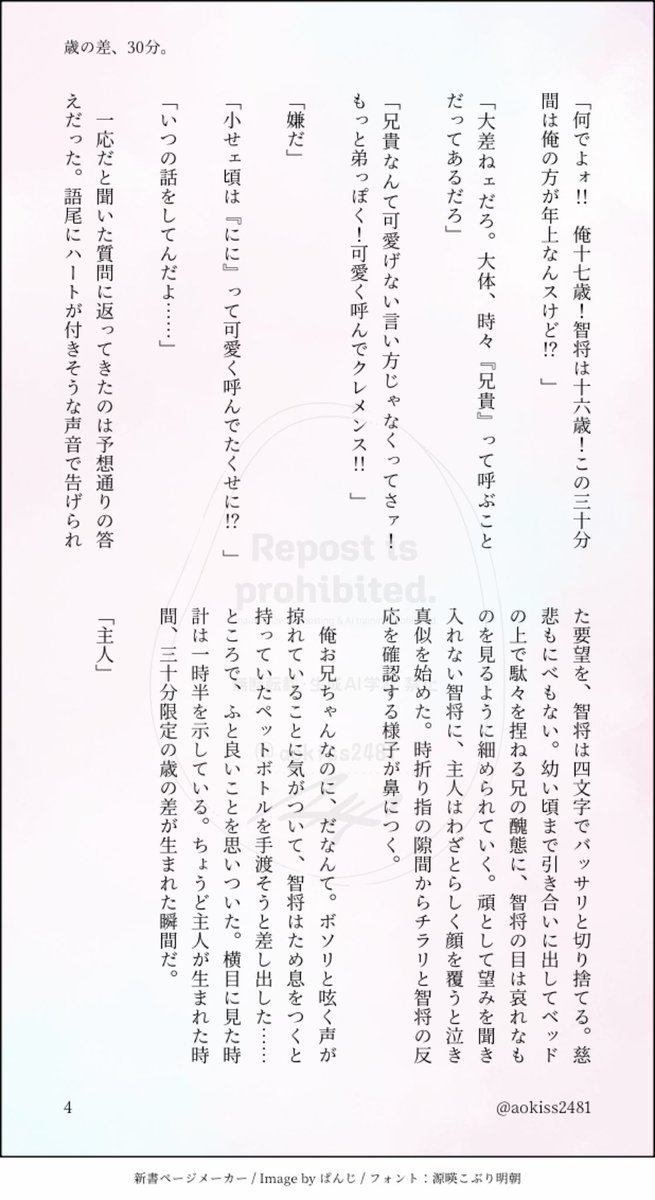 歳の差、30分。
「何でよォ!!　俺十七歳！智将は十六歳！この三十分
間は俺の方が年上なんスけど!?　」
「大差ねェだろ。大体、時々『兄貴』って呼ぶこと
だってあるだろ」
「兄貴なんて可愛げない言い方じゃなくってさァ！
もっと弟っぽく！可愛く呼んでクレメンス!!　」
「嫌だ」
「小せェ頃は『にに』って可愛く呼んでたくせに!?　」
「いつの話をしてんだよ……」
　一応だと聞いた質問に返ってきたのは予想通りの答
えだった。語尾にハートが付きそうな声音で告げられ
た要望を、智将は四文字でバッサリと切り捨てる。慈
悲もにべもない。幼い頃まで引き合いに出してベッド
の上で駄々を捏ねる兄の醜態に、智将の目は哀れなも
のを見るように細められていく。頑として望みを聞き
入れない智将に、主人はわざとらしく顔を覆うと泣き
真似を始めた。時折り指の隙間からチラリと智将の反
応を確認する様子が鼻につく。
　俺お兄ちゃんなのに、だなんて。ボソリと呟く声が
掠れていることに気がついて、智将はため息をつくと
持っていたペットボトルを手渡そうと差し出した……
ところで、ふと良いことを思いついた。横目に見た時
計は一時半を示している。ちょうど主人が生まれた時
間、三十分限定の歳の差が生まれた瞬間だ。
「主人」
Repost is
prohibited.
@aokiss2481
4
@aokiss2481
新書ページメーカー / Image by ぱんじ / フォント：源暎こぶり明朝